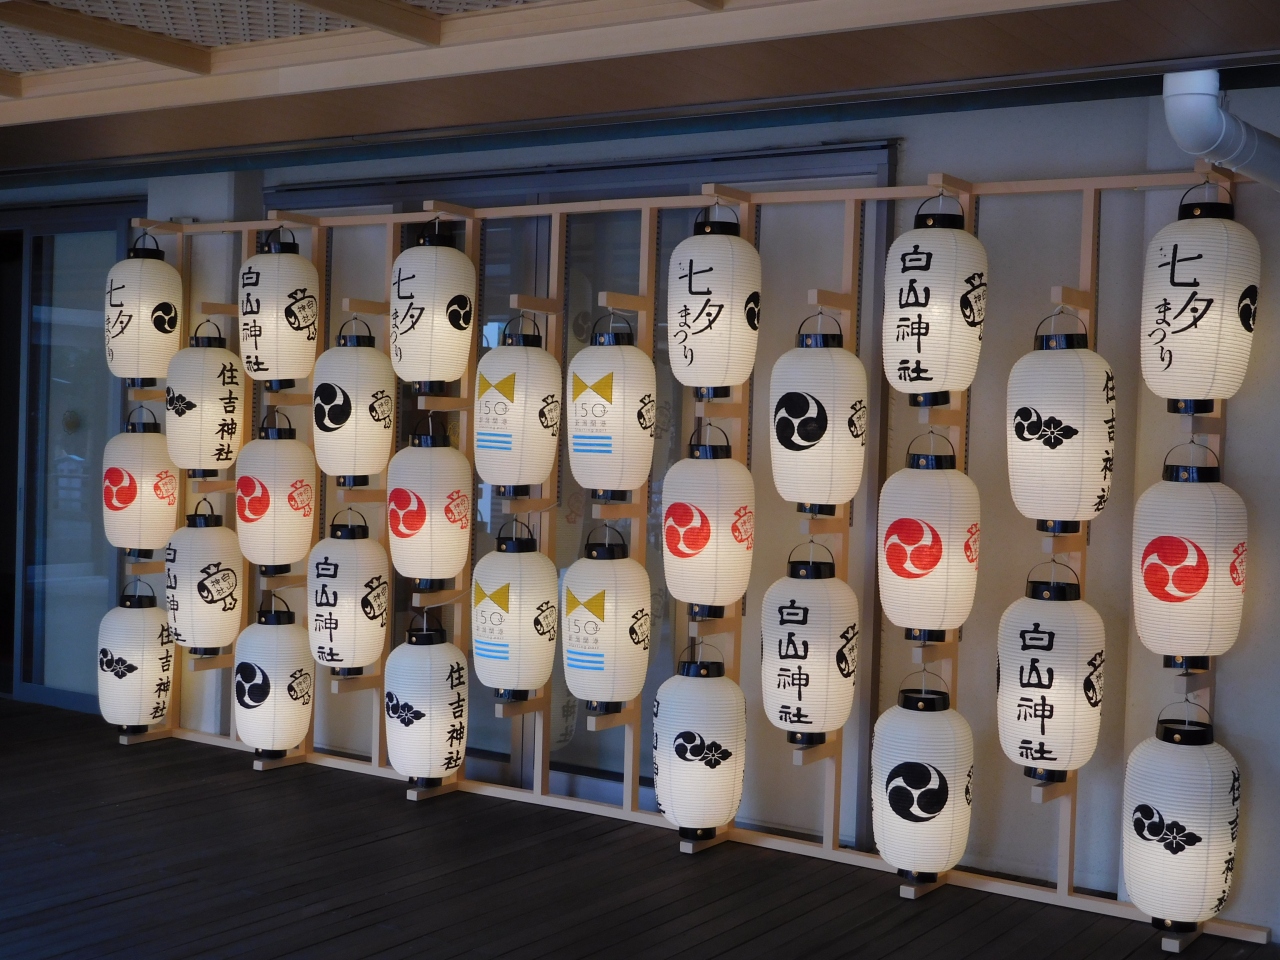 七夕まつり
白山神社
七夕まつり
七夕まつり
白山神社
七夕まつり
住吉神社
150
新潟開港
150
新潟開港
住吉神社
白山神社
白山神社
150
新潟開港
150
新潟開港
白山神社
白山神社
住吉神社
住吉神社
住吉神社